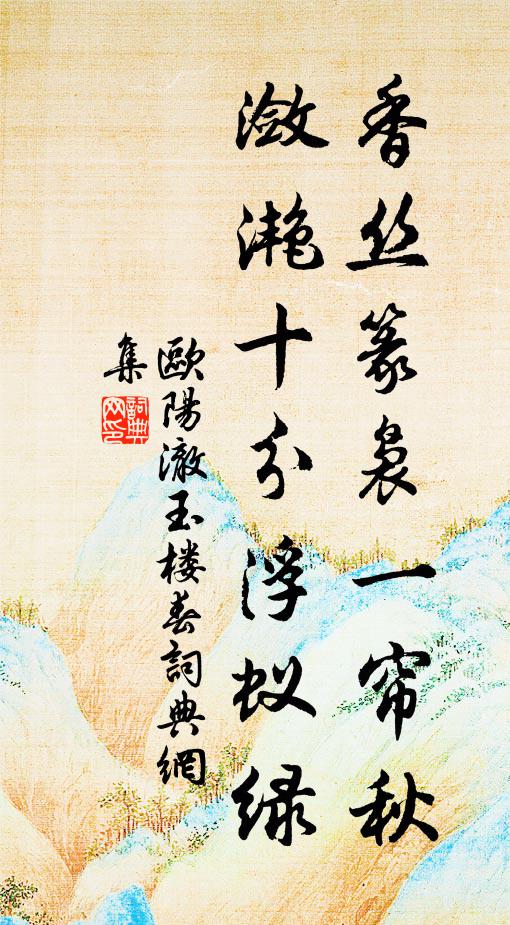 香丝篆袅一帘秋
潋滟十分浮蚁绿
歐陽澈玉楼春詞典網
集
詞典网印